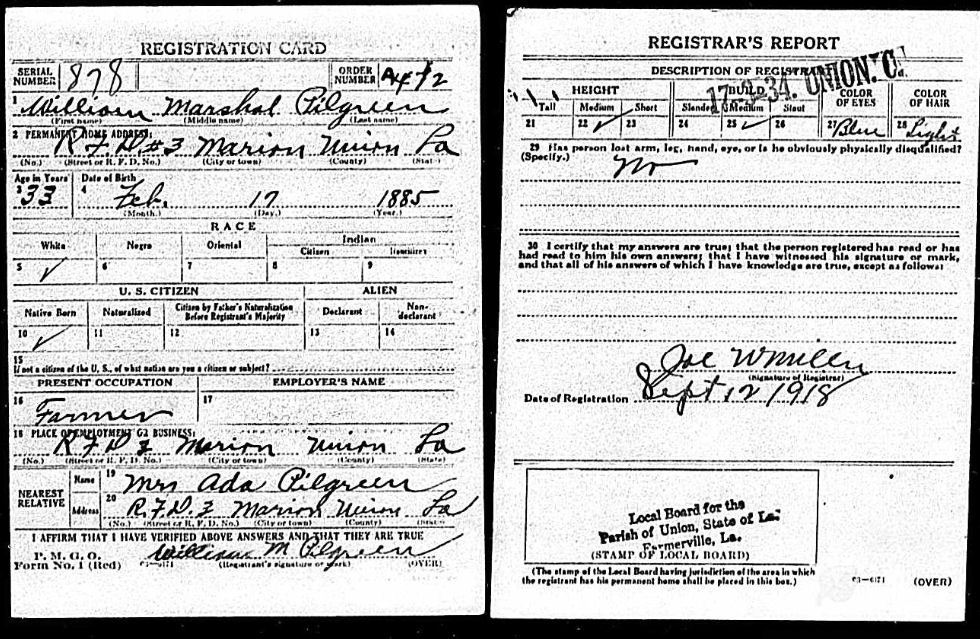 REGISTRATION CARD
SERIAL NUMBER 878 ORDER NUMBER
1 William Marshal Pilgreen
(First name) (Middle name) (Last name)
2 PERMANENT HOME ADDRESS:
R.F.D #3 Marion Union La
(No.) (Street or R. F. D. No.) (City or town) (County) (State)
Age in Years Date of Birth
3 33 4 Feb. 17 1885
(Month.) (Day.) (Year.)
RACE
White Negro Oriental Indian
Citizen Noncitizen
5 ✓ 6 7 8 9
U. S. CITIZEN ALIEN
Native Born Naturalized Citizen by Father's Naturalization Before Registrant's Majority Declarant Non-declarant
10 ✓ 11 12 13 14
15
If not a citizen of the U. S., of what nation are you a citizen or subject?
PRESENT OCCUPATION EMPLOYER'S NAME
16 Farmer 17
18 PLACE OF EMPLOYMENT OR BUSINESS:
R.F.D 3 Marion Union La
(No.) (Street or R. F. D. No.) (City or town) (County) (State)
NEAREST RELATIVE
Name 19 Mrs Ada Pilgreen
Address 20 R.F.D. 3 Marion Union La
(No.) (Street or R. F. D. No.) (City or town) (County) (State)
I AFFIRM THAT I HAVE VERIFIED ABOVE ANSWERS AND THAT THEY ARE TRUE
P. M. G. O.
Form No. 1 (Red) 03—6171 William M Pilgreen
(Registrant's signature or mark) (OVER)
REGISTRAR'S REPORT
17-9-34. UNION. Co.
DESCRIPTION OF REGISTRANT
HEIGHT BUILD COLOR OF EYES COLOR OF HAIR
Tall Medium Short Slender Medium Stout
21 22 ✓ 23 24 25 ✓ 26 27 Blue 28 Light
29 Has person lost arm, leg, hand, eye, or is he obviously physically disqualified?
(Specify.) No
30 I certify that my answers are true; that the person registered has read or has
had read to him his own answers; that I have witnessed his signature or mark,
and that all of his answers of which I have knowledge are true, except as follows:
Joe W
(Signature of Registrar)
Date of Registration Sept 12 1918
Local Board for the
Parish of Union, State of La.
Farmerville, La.
(STAMP OF LOCAL BOARD)
(The stamp of the Local Board having jurisdiction of the area in which
the registrant has his permanent home shall be placed in this box.)
03—6171 (OVER)